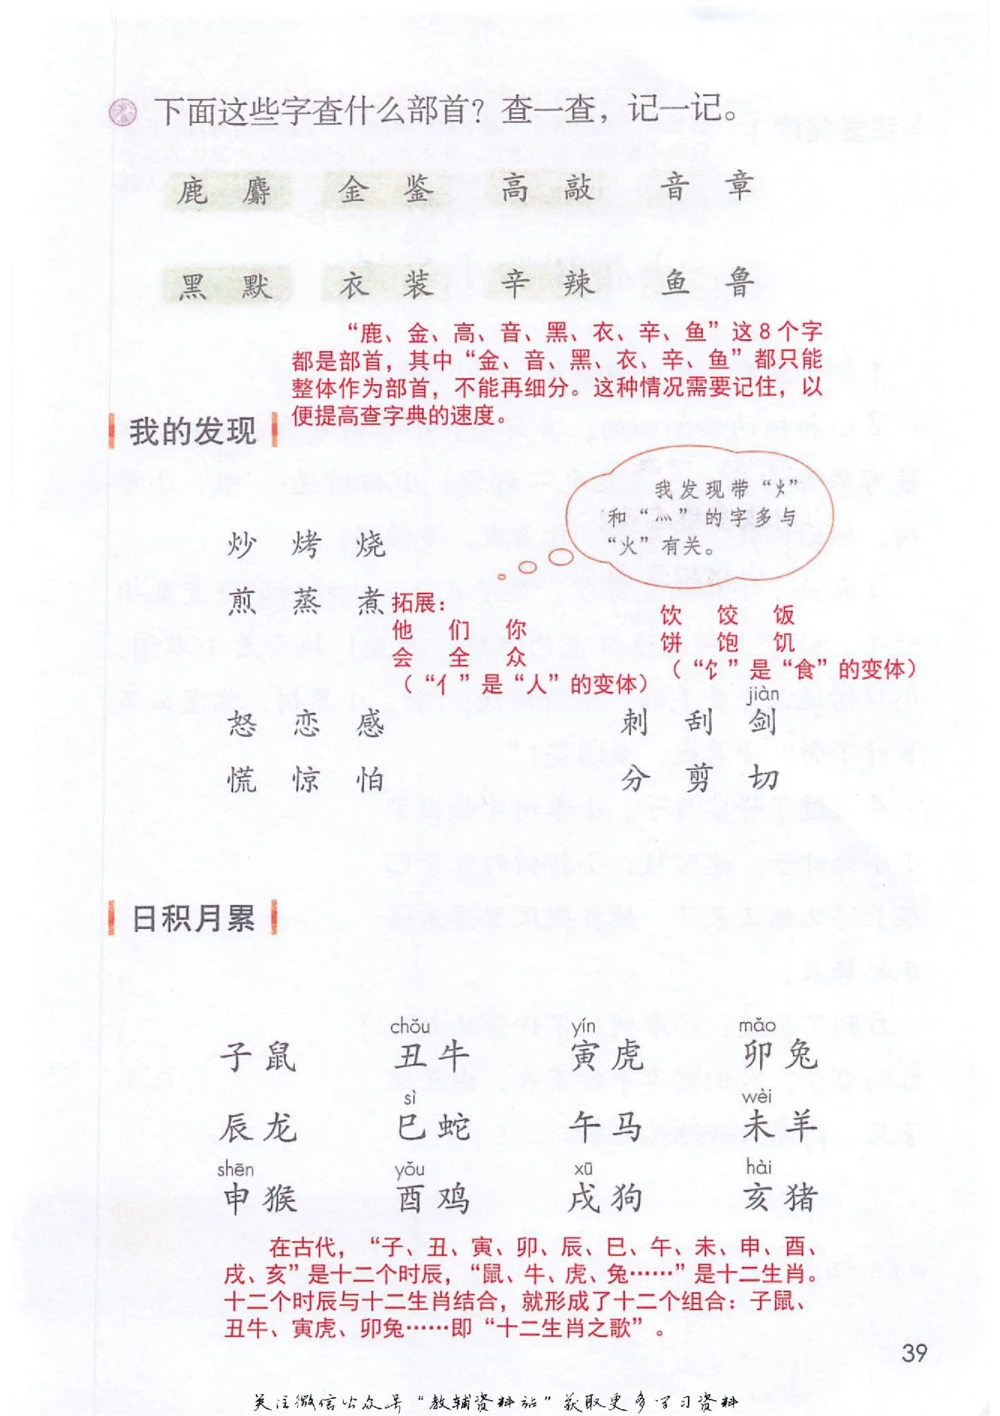 下面这些字查什么部首？查一查，记一记。
鹿 麝 金 鉴 高 敲 音 章
黑 默 衣 装 辛 辣 鱼 鲁
“鹿、金、高、音、黑、衣、辛、鱼”这8个字
都是部首，其中“金、音、黑、衣、辛、鱼”都只能
整体作为部首，不能再细分。这种情况需要记住，以
便提高查字典的速度。
我的发现
我发现带“火”
和“灬”的字多与
“火”有关。
炒 烤 烧
煎 蒸 煮
拓展：
他 们 你
会 全 众
（“亻”是“人”的变体）
饮 饺 饭
饼 饱 饥
（“饣”是“食”的变体）
jiàn
怒 恋 感 刺 刮 剑
慌 惊 怕 分 剪 切
日积月累
chǒu yín mǎo
子鼠 丑牛 寅虎 卯兔
sì wèi
辰龙 巳蛇 午马 未羊
shēn yǒu xū hài
申猴 酉鸡 戌狗 亥猪
在古代，“子、丑、寅、卯、辰、巳、午、未、申、酉、
戌、亥”是十二个时辰，“鼠、牛、虎、兔……”是十二生肖。
十二个时辰与十二生肖结合，就形成了十二个组合：子鼠、
丑牛、寅虎、卯兔……即“十二生肖之歌”。
39
关注微信公众号“教辅资料站”获取更多学习资料